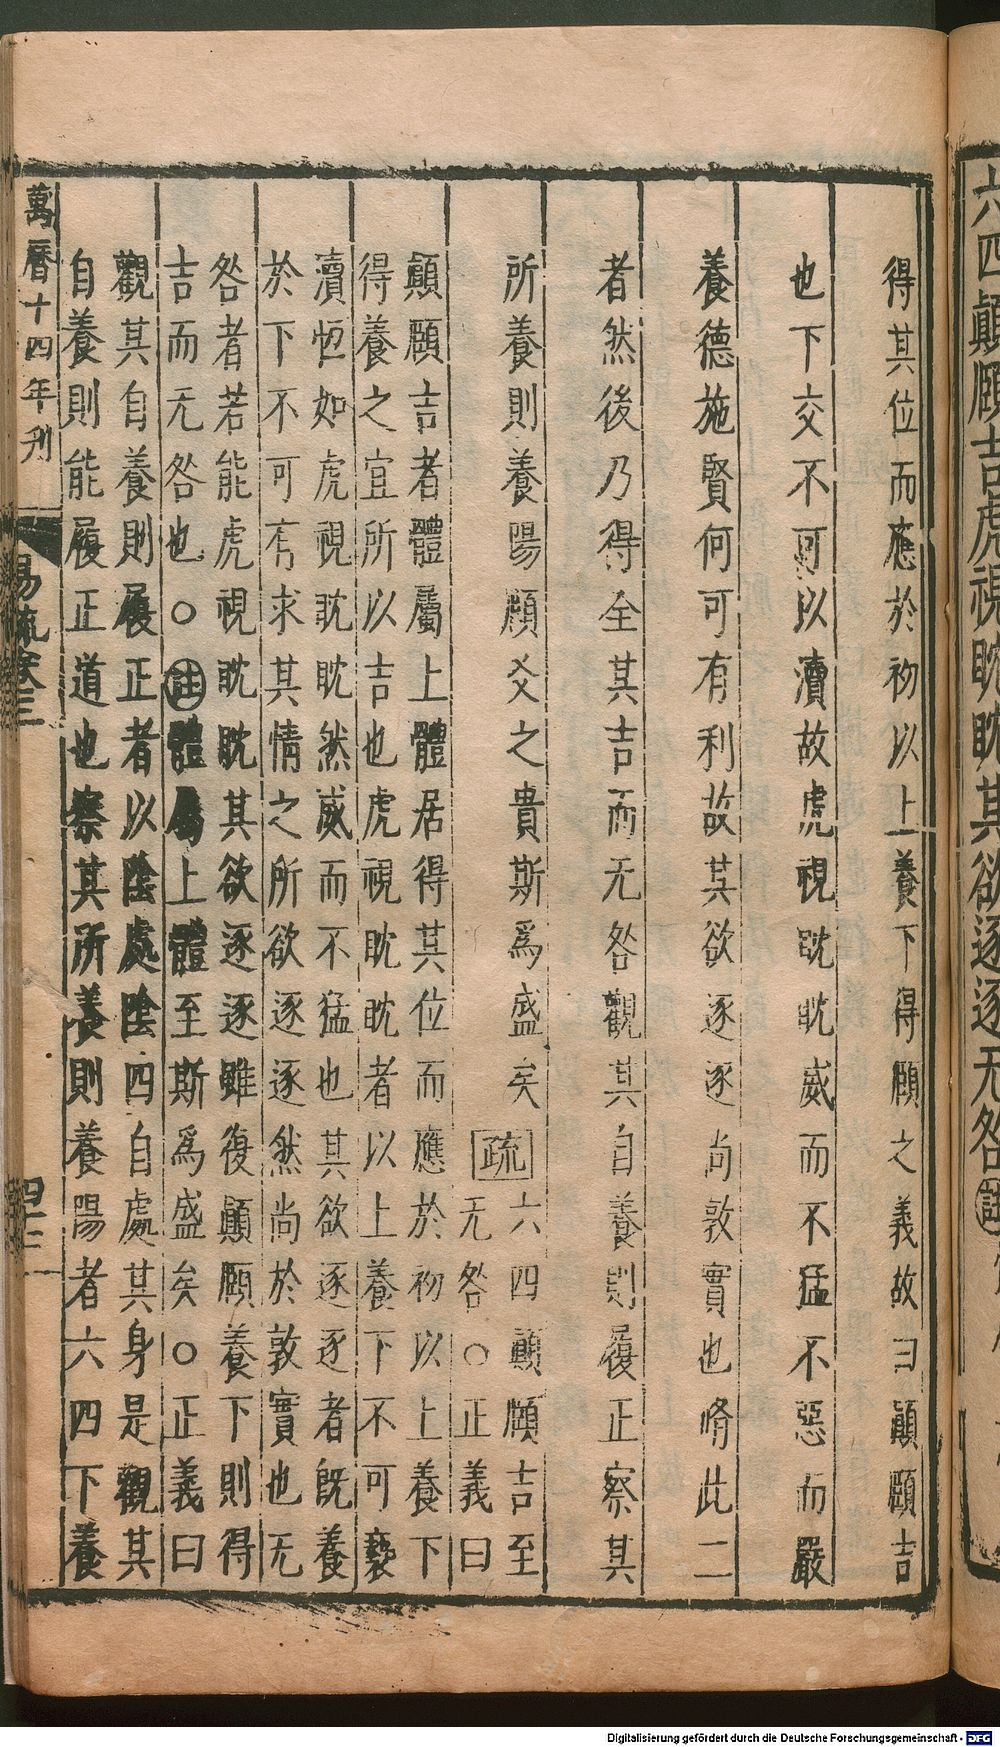 六四顚頤吉虎視眈眈其欲逐逐无咎註
得其位而應於初以上養下得頤之義故曰顚頤吉
也下交不可以瀆故虎視眈眈威而不猛不惡而嚴
養德施賢何可有利故其欲逐逐尚敦實也脩此二
者然後乃得全其吉而无咎觀其自養則履正察其
所養則養陽頤爻之貴斯爲盛矣疏六四顚頤吉至
无咎○正義曰
顚頤吉者體屬上體居得其位而應於初以上養下
得養之宜所以吉也虎視眈眈者以上養下不可褻
瀆恆如虎視眈眈然威而不猛也其欲逐逐者既養
於下不可有求其情之所欲逐逐然尚於敦實也无
咎者若能虎視眈眈其欲逐逐雖復顚頤養下則得
吉而无咎也○註體屬上體至斯爲盛矣○正義曰
觀其自養則履正者以陰處陰四自處其身是觀其
自養則能履正道也察其所養則養陽者六四下養
萬曆十四年刋
易疏卷三
四十二
Digitalisierung gefördert durch die Deutsche Forschungsgemeinschaft - DFG